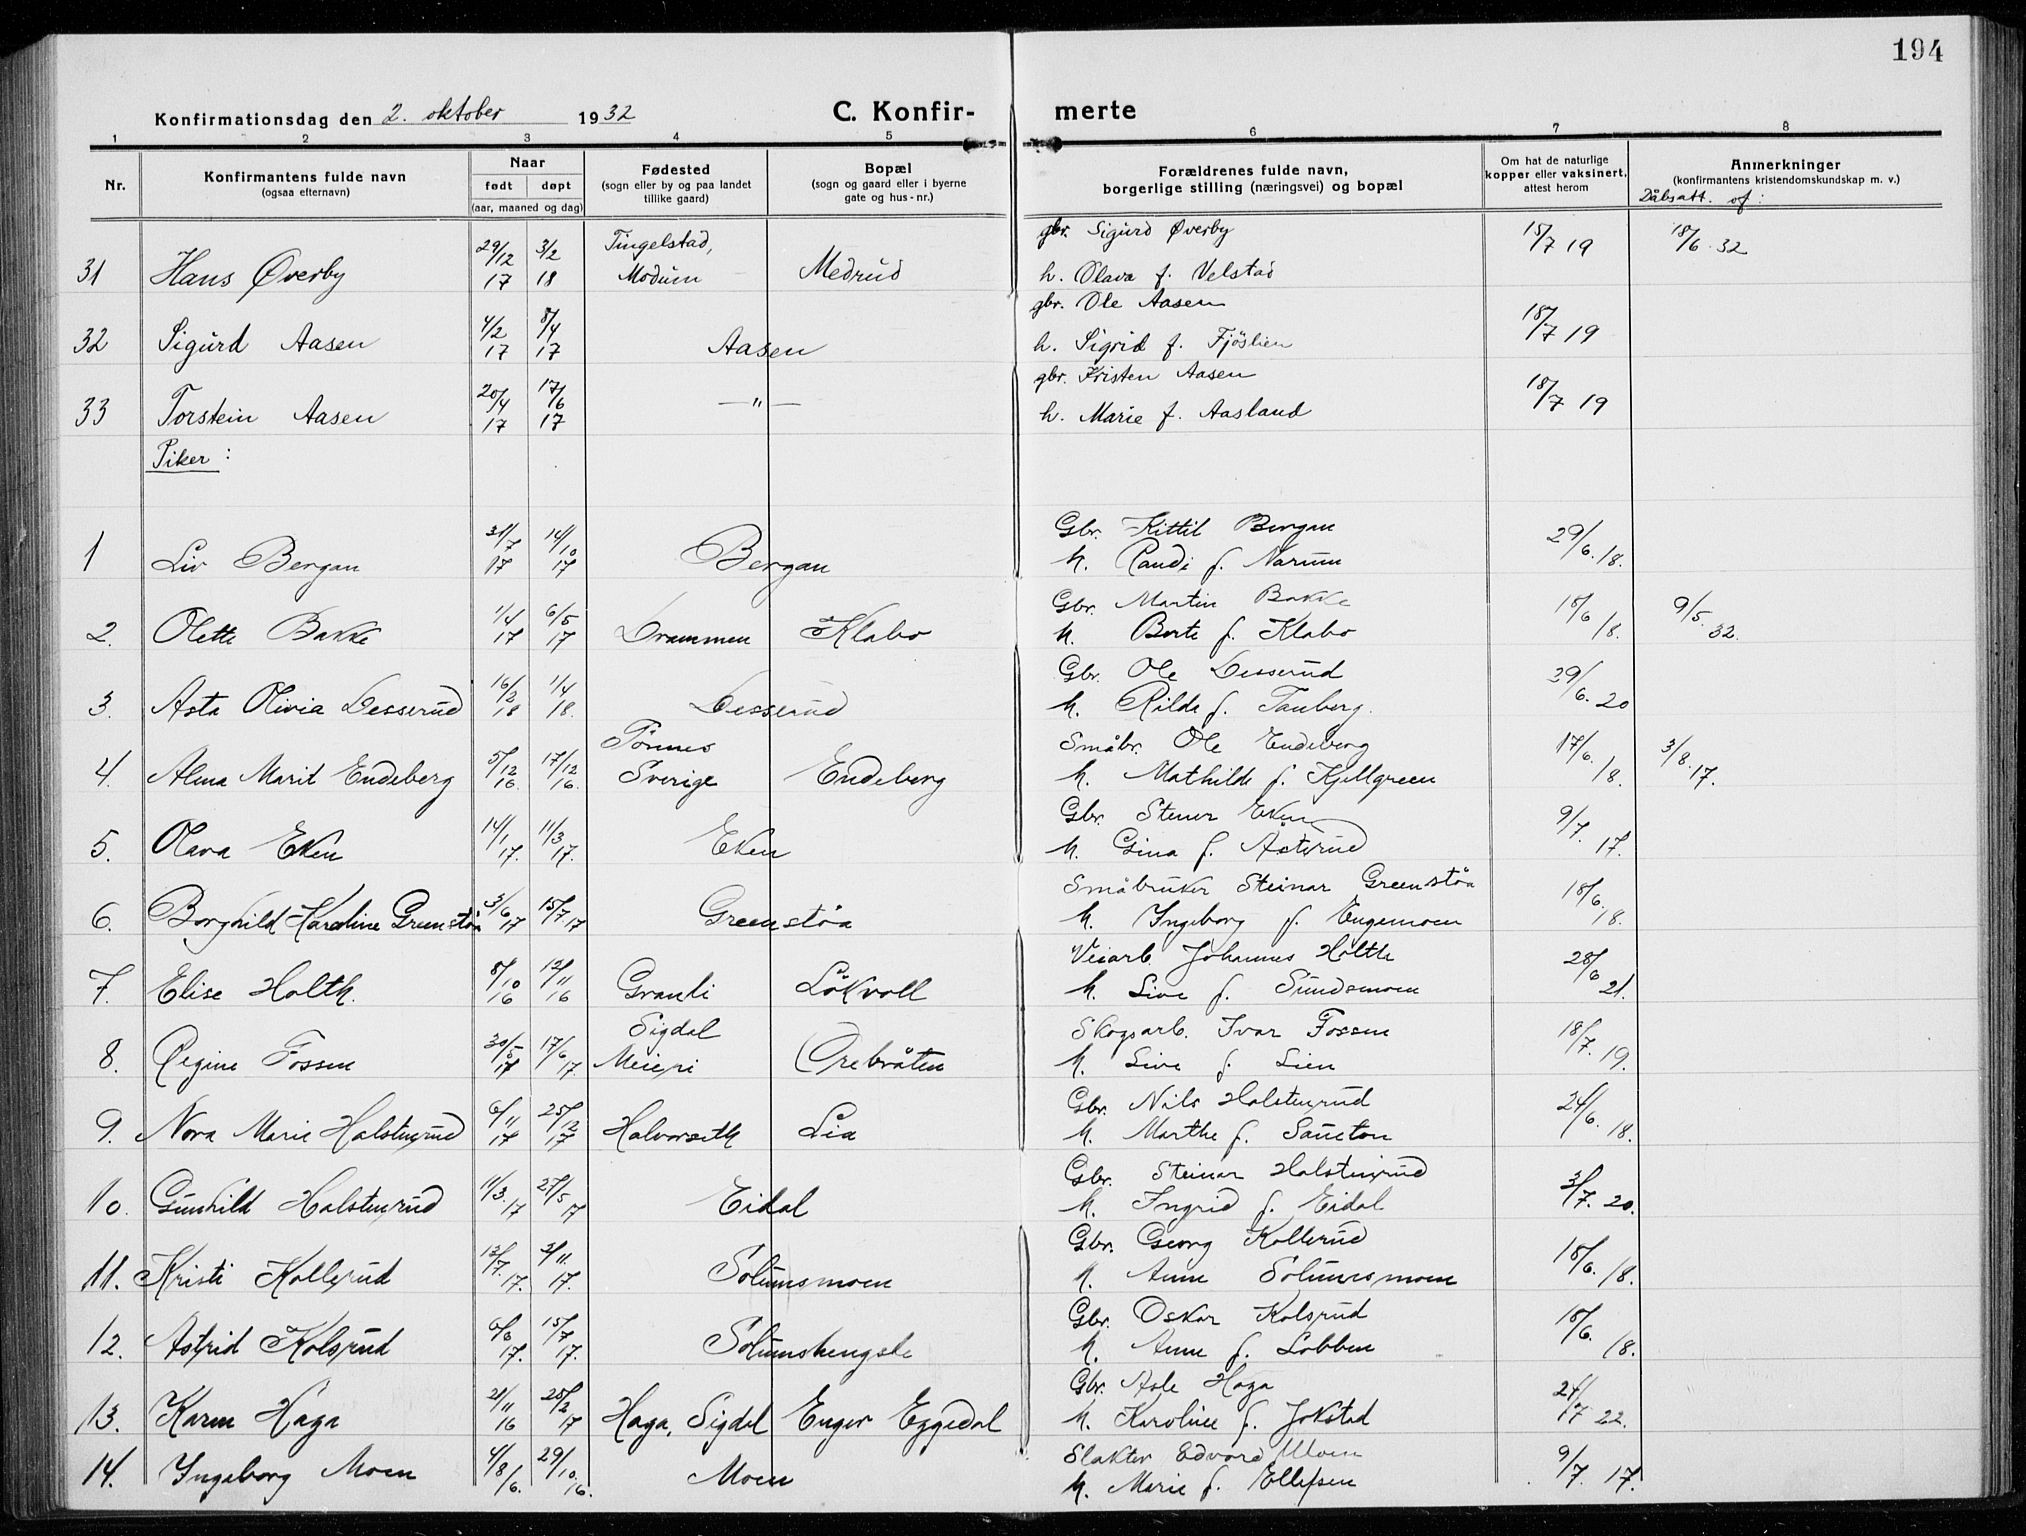 194
Konfirmationsdag den 2. oktober 1932 C. Konfir- merte
1 2 3 4 5 6 7 8
Nr. Konfirmantens fulde navn (ogsaa efternavn) Naar født døpt (aar, maaned og dag) Fødested (sogn eller by og paa landet tillike gaard) Bopæl (sogn og gaard eller i byerne gate og hus-nr.) Forældrenes fulde navn, borgerlige stilling (næringsvei) og bopæl Om hat de naturlige kopper eller vaksinert, attest herom Anmerkninger (konfirmantens kristendomskundskap m. v.)
Dåbsatt. af:
31 Hans Øverby 29/12 17 3/2 18 Tingelstad, Modum Medrud gbr. Sigurd Øverby 15/7 19 18/6 32
h. Olava f. Velstad
32 Sigurd Aasen 4/2 17 8/4 17 Aasen gbr. Ole Aasen 18/7 19
h. Sigrid f. Fjöslien
33 Torstein Aasen 20/4 17 17/6 17 —"— gbr. Kristen Aasen 18/7 19
h. Marie f. Aasland
Piker:
1 Liv Bergan 31/7 17 14/10 17 Bergan Gbr. Kittil Bergan 29/6. 18.
h. Randi f. Narum
2. Olette Bakke 1/4 17 6/5 17 Drammen Klabo Gbr. Martin Bakke 18/6 18. 9/5. 32.
h. Berte f. Klabo
3. Asta Olivia Desserud 16/2 18 1/4 18. Desserud Gbr. Ole Desserud 29/6. 20
h. Rilda f. Tauberg.
4. Alma Marit Endeberg 5/12 16. 17/12 16. Sverige Endeberg Småbr. Ole Endeberg 17/6. 18. 3/8. 17.
h. Mathilde f. Kjellgreen
5. Olava Eken 14/1 17. 11/3 17. Eken Gbr. Stener Eken 9/7. 17.
h. Gina f. Åsterud
6. Borghild Karoline Greenstøa 3/6 17 15/7 17 Greenstøa Småbruker Steinar Greenstøa 18/6. 18.
h. Ingeborg f. Engemoen
7. Elise Holth. 8/10 16 12/11 16 Granli Løkvoll Veiarb. Johannes Holthe 28/6 21.
h. Live f. Sundsmoen
8. Regine Fossen 30/5 17 17/6 17. Sigdal Meieri Orebråten Skogsarb. Ivar Fossen 18/7. 19.
h. Live f. Lien
9. Nora Marie Halstenrud 6/11 17 25/12 17 Halvorseth Lia Gbr. Nils Halstenrud 24/6. 18.
h. Marthe f. Saueton
10. Gunhild Halstenrud 11/3. 17 27/5 17 Eidal Gbr. Steinar Halstenrud 3/7. 20.
h. Ingrid f. Eidal
11. Kristi Kollerud 13/7. 17. 3/11. 17. Solumsmoen Gbr. Georg Kollerud 18/6. 18.
h. Anne Solumsmoen
12. Astrid Kolsrud 6/6 17. 15/7 17. Solumshengsle Gbr. Oskar Kolsrud 18/6. 18.
h. Anne f. Lobben
13. Karen Haga 21/11 16 25/2 17 Haga, Sigdal Enger Eggedal Gbr. Asle Haga 24/7 22.
h. Karoline f. Jokstad
14. Ingeborg Moen 4/8 16. 29/10 16. Moen Slakter Edvard Moen 9/7. 17.
h. Marie f. Ellefsen